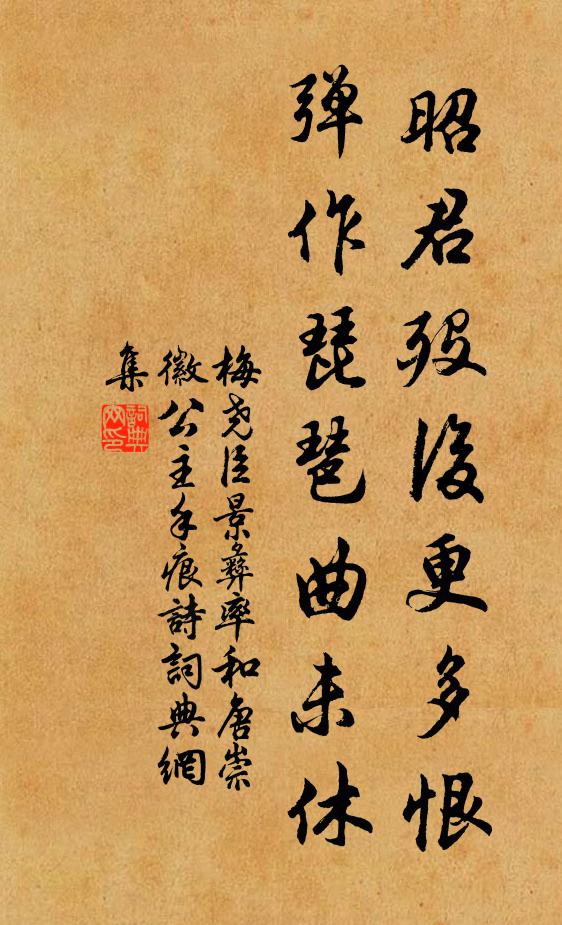 昭君殁後更多恨
弹作琵琶曲未休
梅尧臣景彝率和唐崇
徽公主手痕詩詞典網
集
詞典
网印